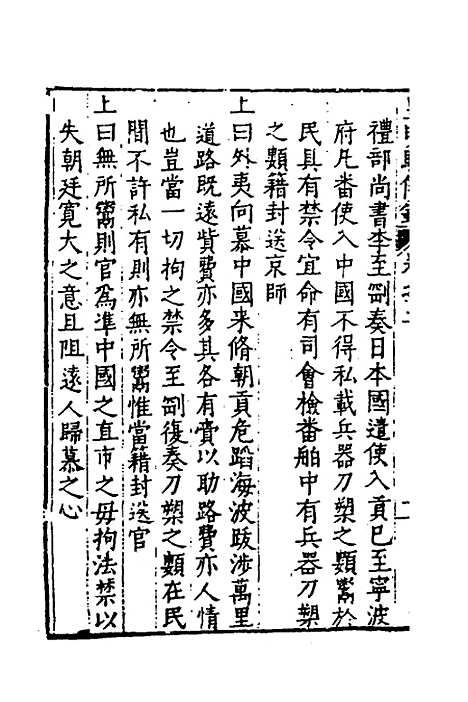 禮部尚書李至剛奏日本國遣使入貢已至寧波
府凡番使入中國不得私載兵器刀槊之類鬻於
民具有禁令宜命有司會檢番舶中有兵器刀槊
之類籍封送京師
上曰外夷向慕中國来脩朝貢危蹈海波跋涉萬里
道路既遠貲費亦多其各有賫以助路費亦人情
也豈當一切拘之禁令至剛復奏刀槊之類在民
間不許私有則亦無所鬻惟當籍封送官
上曰無所鬻則官為準中國之直市之毋拘法禁以
失朝廷寛大之意且阻遠人歸慕之心